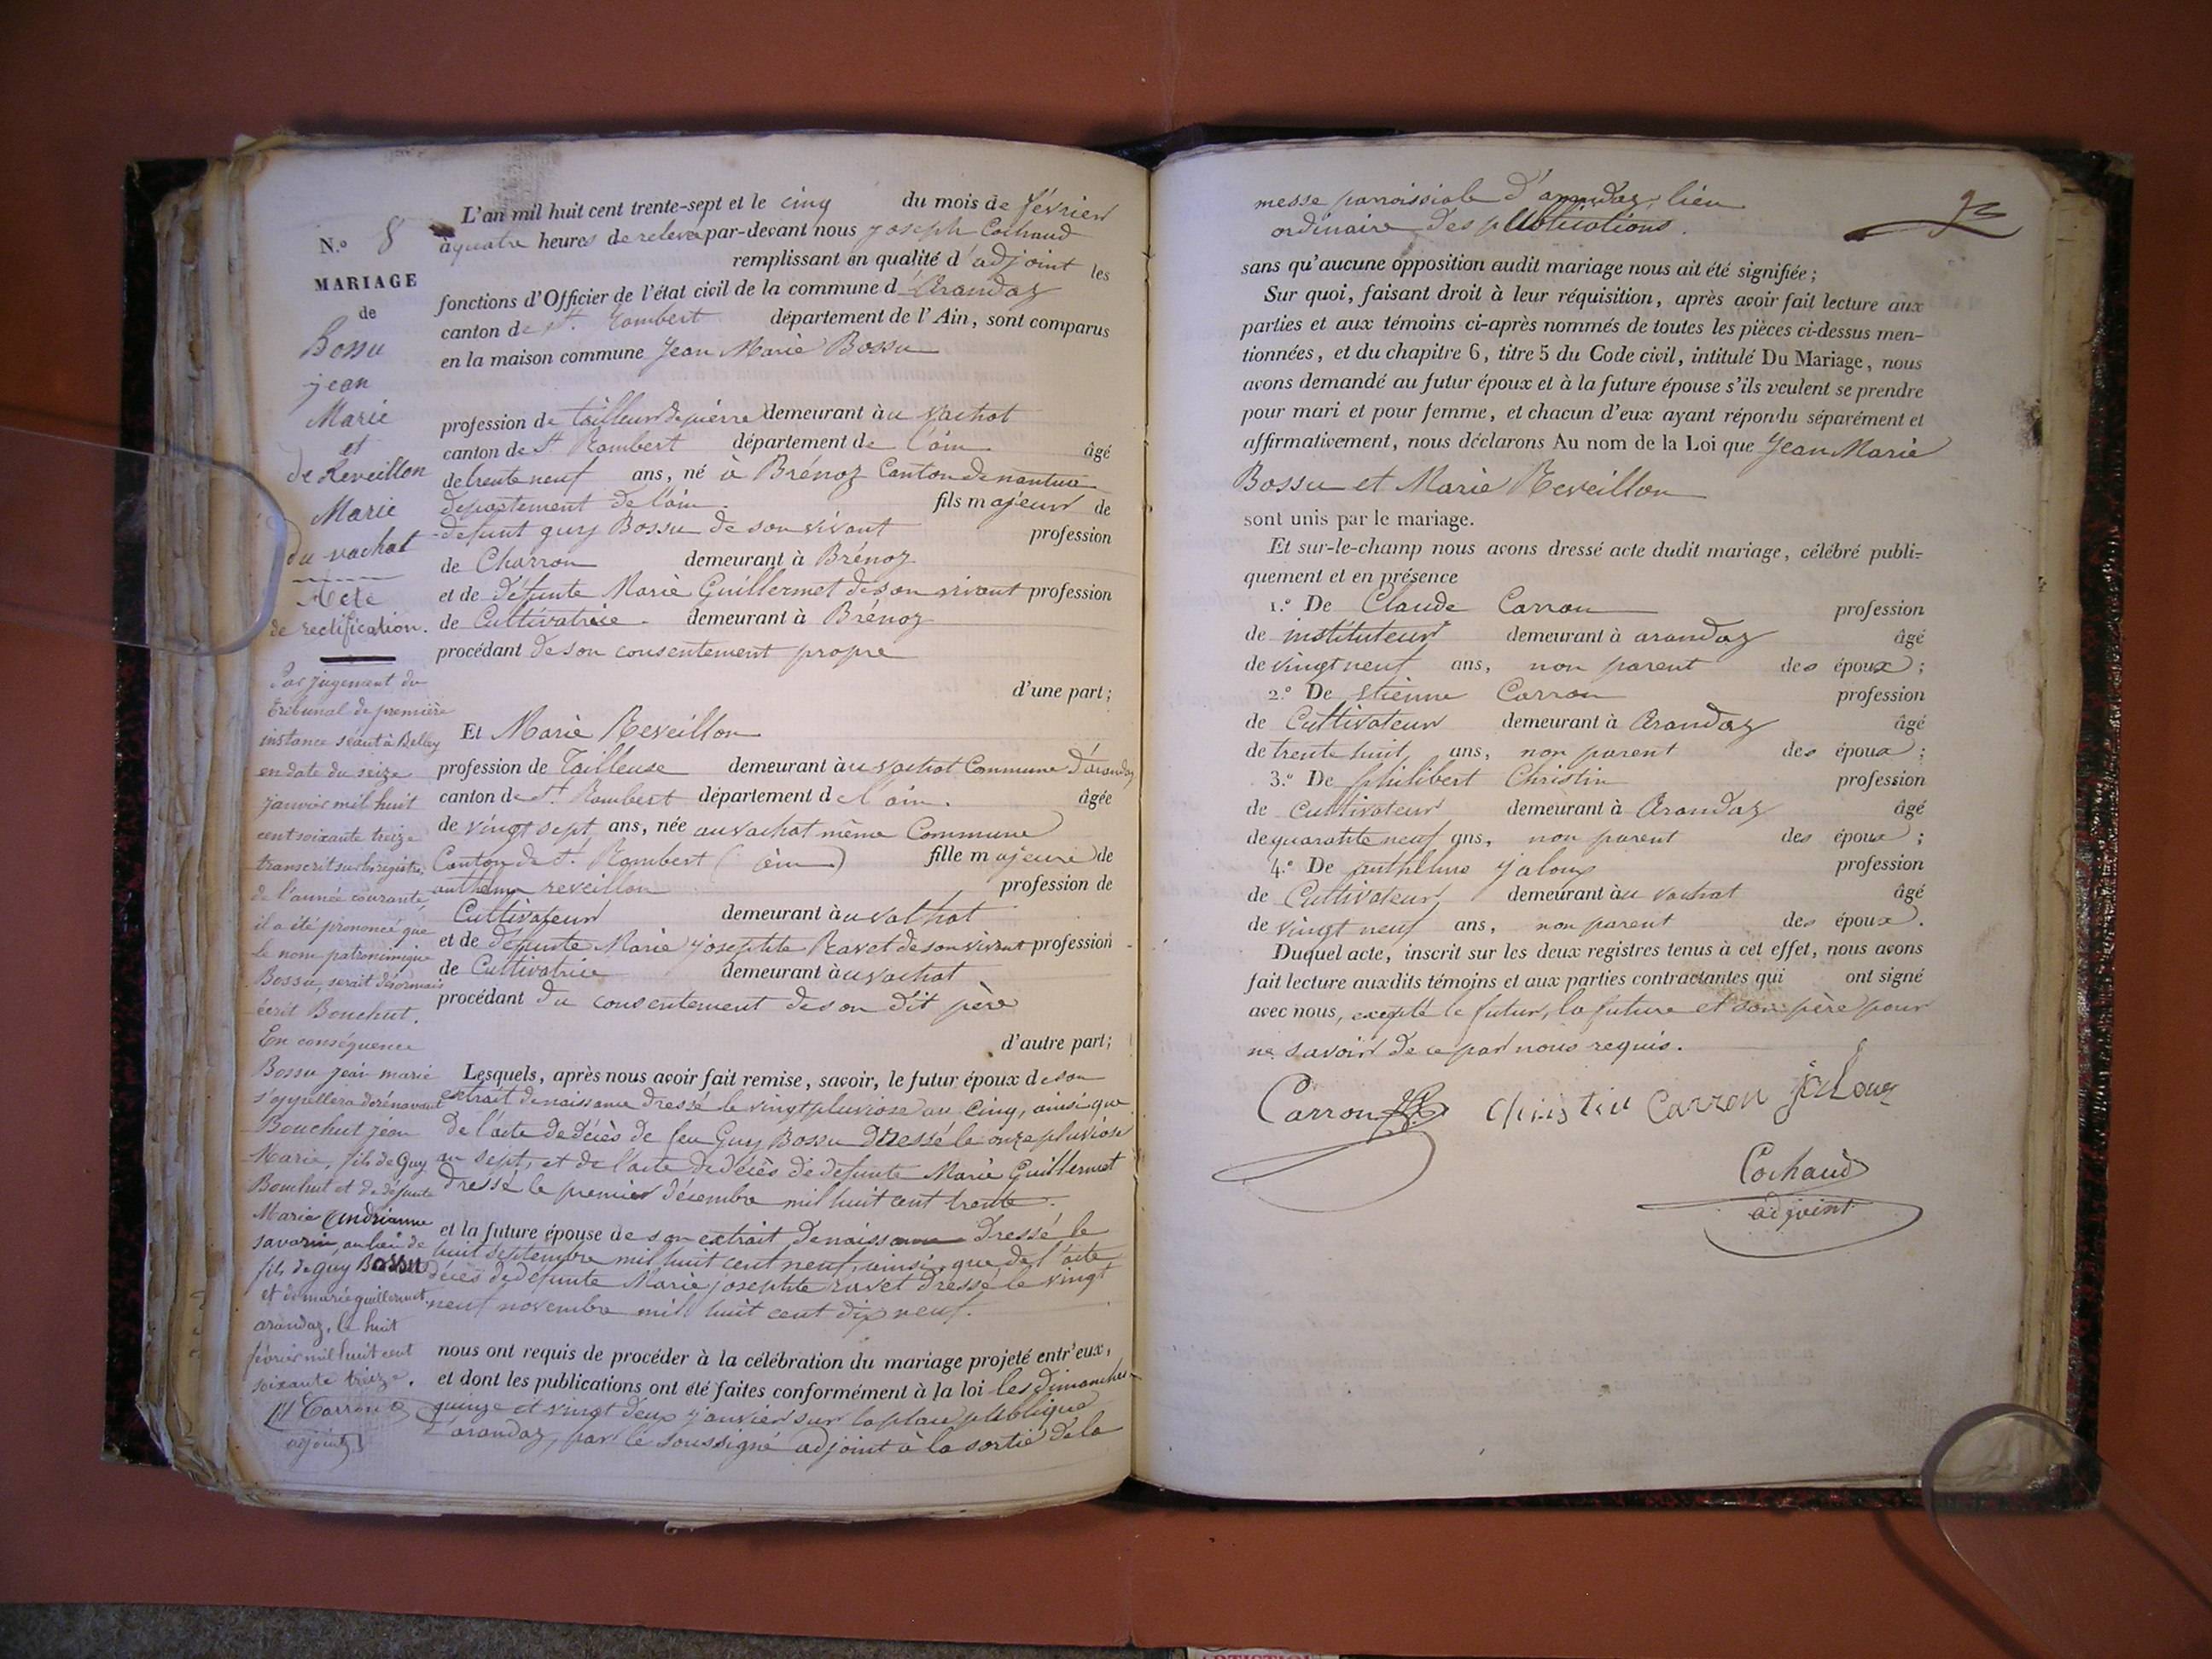 N.° 8
MARIAGE
de
Bossu
jean
Marie
et
de Reveillon
Marie
du vachat
Acte
de rectification.
Par jugement du
tribunal de première
instance séant à Belley
en date du seize
janvier mil huit
cent soixante treize
transcrit sur les registres
de l'année courante,
il a été prononcé que
le nom patronimique
Bossu, serait désormais
écrit Bouchut.
En conséquence
Bossu jean marie
s'appellera dorénavant
Bouchut jean
Marie, fils de Guy
Bouchut et de défunte
Marie Andrianne
savarin, au lieu de
fils de guy Bossu
et de marie guillermet
arandaz, le huit
février mil huit cent
soixante treize.
Carron
adjoint
L'an mil huit cent trente-sept et le cinq du mois de février
à quatre heures de relevé par-devant nous joseph Cochaud
remplissant en qualité d'adjoint les
fonctions d'Officier de l'état civil de la commune d'Arandaz
canton de St. Rambert département de l'Ain, sont comparus
en la maison commune Jean Marie Bossu
profession de tailleur de pierre demeurant àu vachat
canton de St Rambert département de l'ain âgé
de trente neuf ans, né à Brénoz Canton de nantua
departement de l'ain. fils majeur de
défunt guy Bossu de son vivant profession
de Charron demeurant à Brénoz
et de défunte Marie Guillermet de son vivant profession
de Cultivatrice demeurant à Brénoz
procédant de son consentement propre
d'une part;
Et Marie Reveillon
profession de Tailleuse demeurant àu vachat Commune d'arandaz
canton de St. Rambert département de l'ain. âgée
de vingt sept ans, née au vachat même Commune
Canton de St. Rambert (ain) fille majeure de
anthelme reveillon profession de
Cultivateur demeurant àu vachat
et de défunte Marie josephte Ravet de son vivant profession
de Cultivatrice demeurant àu vachat
procédant du consentement de son dit père
d'autre part;
Lesquels, après nous avoir fait remise, savoir, le futur époux de son
extrait de naissance dressé le vingt pluviose an cinq, ainsi que
de l'acte de décès de feu Guy Bossu dressé le onze pluviose
an sept, et de l'acte de décès de défunte Marie Guillermet
dressé le premier décembre mil huit cent trente.
et la future épouse de son extrait de naissance dressé le
huit septembre mil huit cent neuf, ainsi que de l'acte
décès de défunte Marie josephte ravet dressé le vingt
neuf novembre mil huit cent dix neuf.
nous ont requis de procéder à la célébration du mariage projeté entr'eux,
et dont les publications ont été faites conformément à la loi les dimanches
quinze et vingt deux janvier sur la place publique
d'arandaz, par le soussigné adjoint à la sortie de la
messe parroissiale d'arandaz, lieu
ordinaire des publications.
sans qu'aucune opposition audit mariage nous ait été signifiée;
Sur quoi, faisant droit à leur réquisition, après avoir fait lecture aux
parties et aux témoins ci-après nommés de toutes les pièces ci-dessus men-
tionnées, et du chapitre 6, titre 5 du Code civil, intitulé Du Mariage, nous
avons demandé au futur époux et à la future épouse s'ils veulent se prendre
pour mari et pour femme, et chacun d'eux ayant répondu séparément et
affirmativement, nous déclarons Au nom de la Loi que Jean Marie
Bossu et Marie Reveillon
sont unis par le mariage.
Et sur-le-champ nous avons dressé acte dudit mariage, célébré publi-
quement et en présence
1.° De Claude Carron profession
de instituteur demeurant à arandaz âgé
de vingt neuf ans, non parent des époux;
2.° De Etienne Carron profession
de Cultivateur demeurant à Arandaz âgé
de trente huit ans, non parent des époux;
3.° De philibert Christin profession
de cultivateur demeurant à Arandaz âgé
de quarante neuf ans, non parent des époux;
4.° De anthelme jaloux profession
de Cultivateur demeurant àu vachat âgé
de vingt neuf ans, non parent des époux.
Duquel acte, inscrit sur les deux registres tenus à cet effet, nous avons
fait lecture auxdits témoins et aux parties contractantes qui ont signé
avec nous, excepté le futur, la future et son père pour
ne savoir de ce par nous requis.
Carron Christin Carron jaloux
Cochaud
adjoint